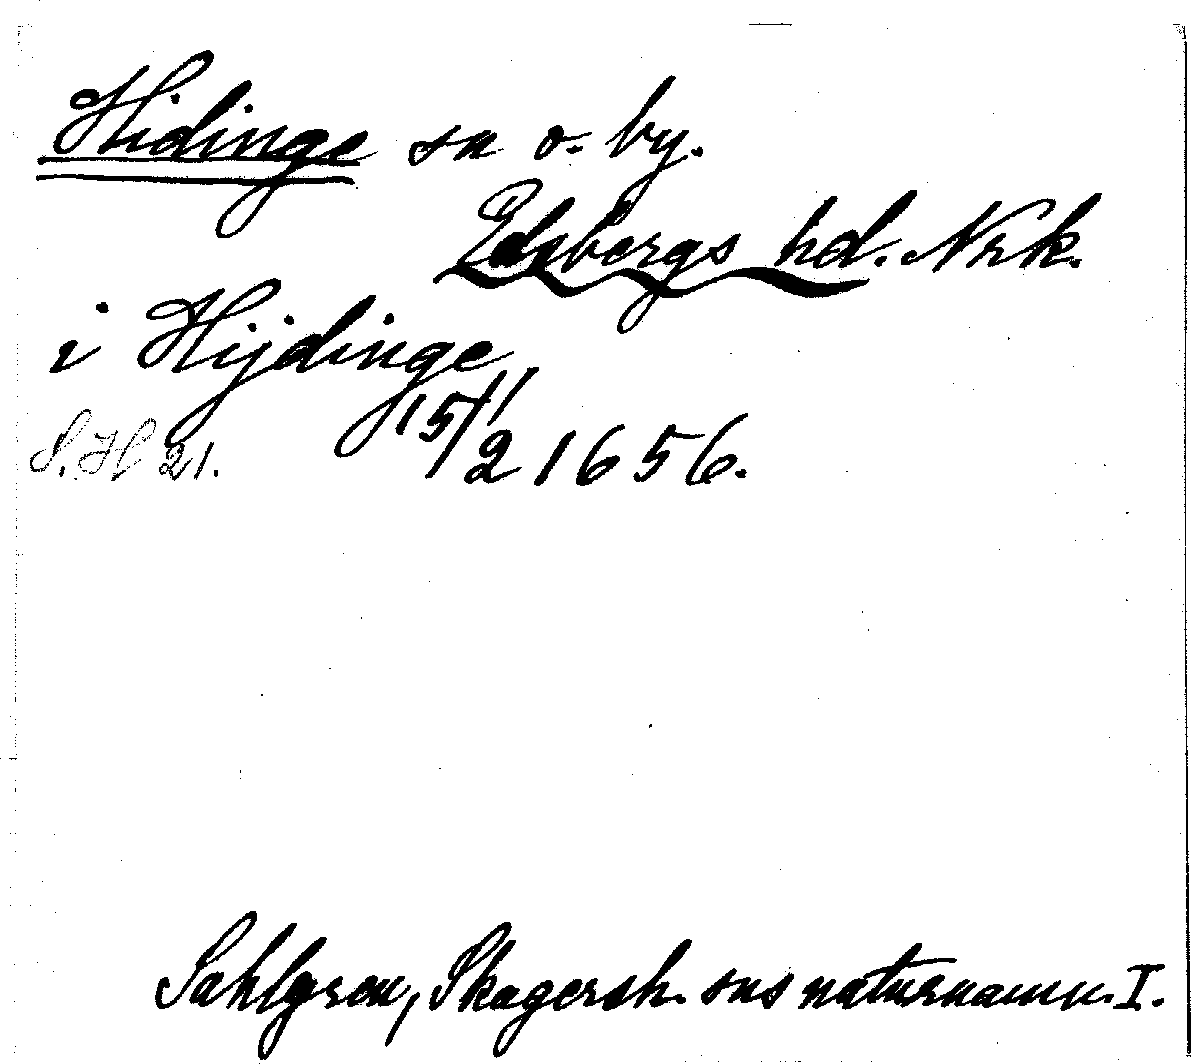 Hidinge sn o. by.
Edsbergs hd. Nrk.
i Hijdinge
15/11
S. H 21. 2 1656.
Sahlgren, Skagersh. sns naturnamn. I.